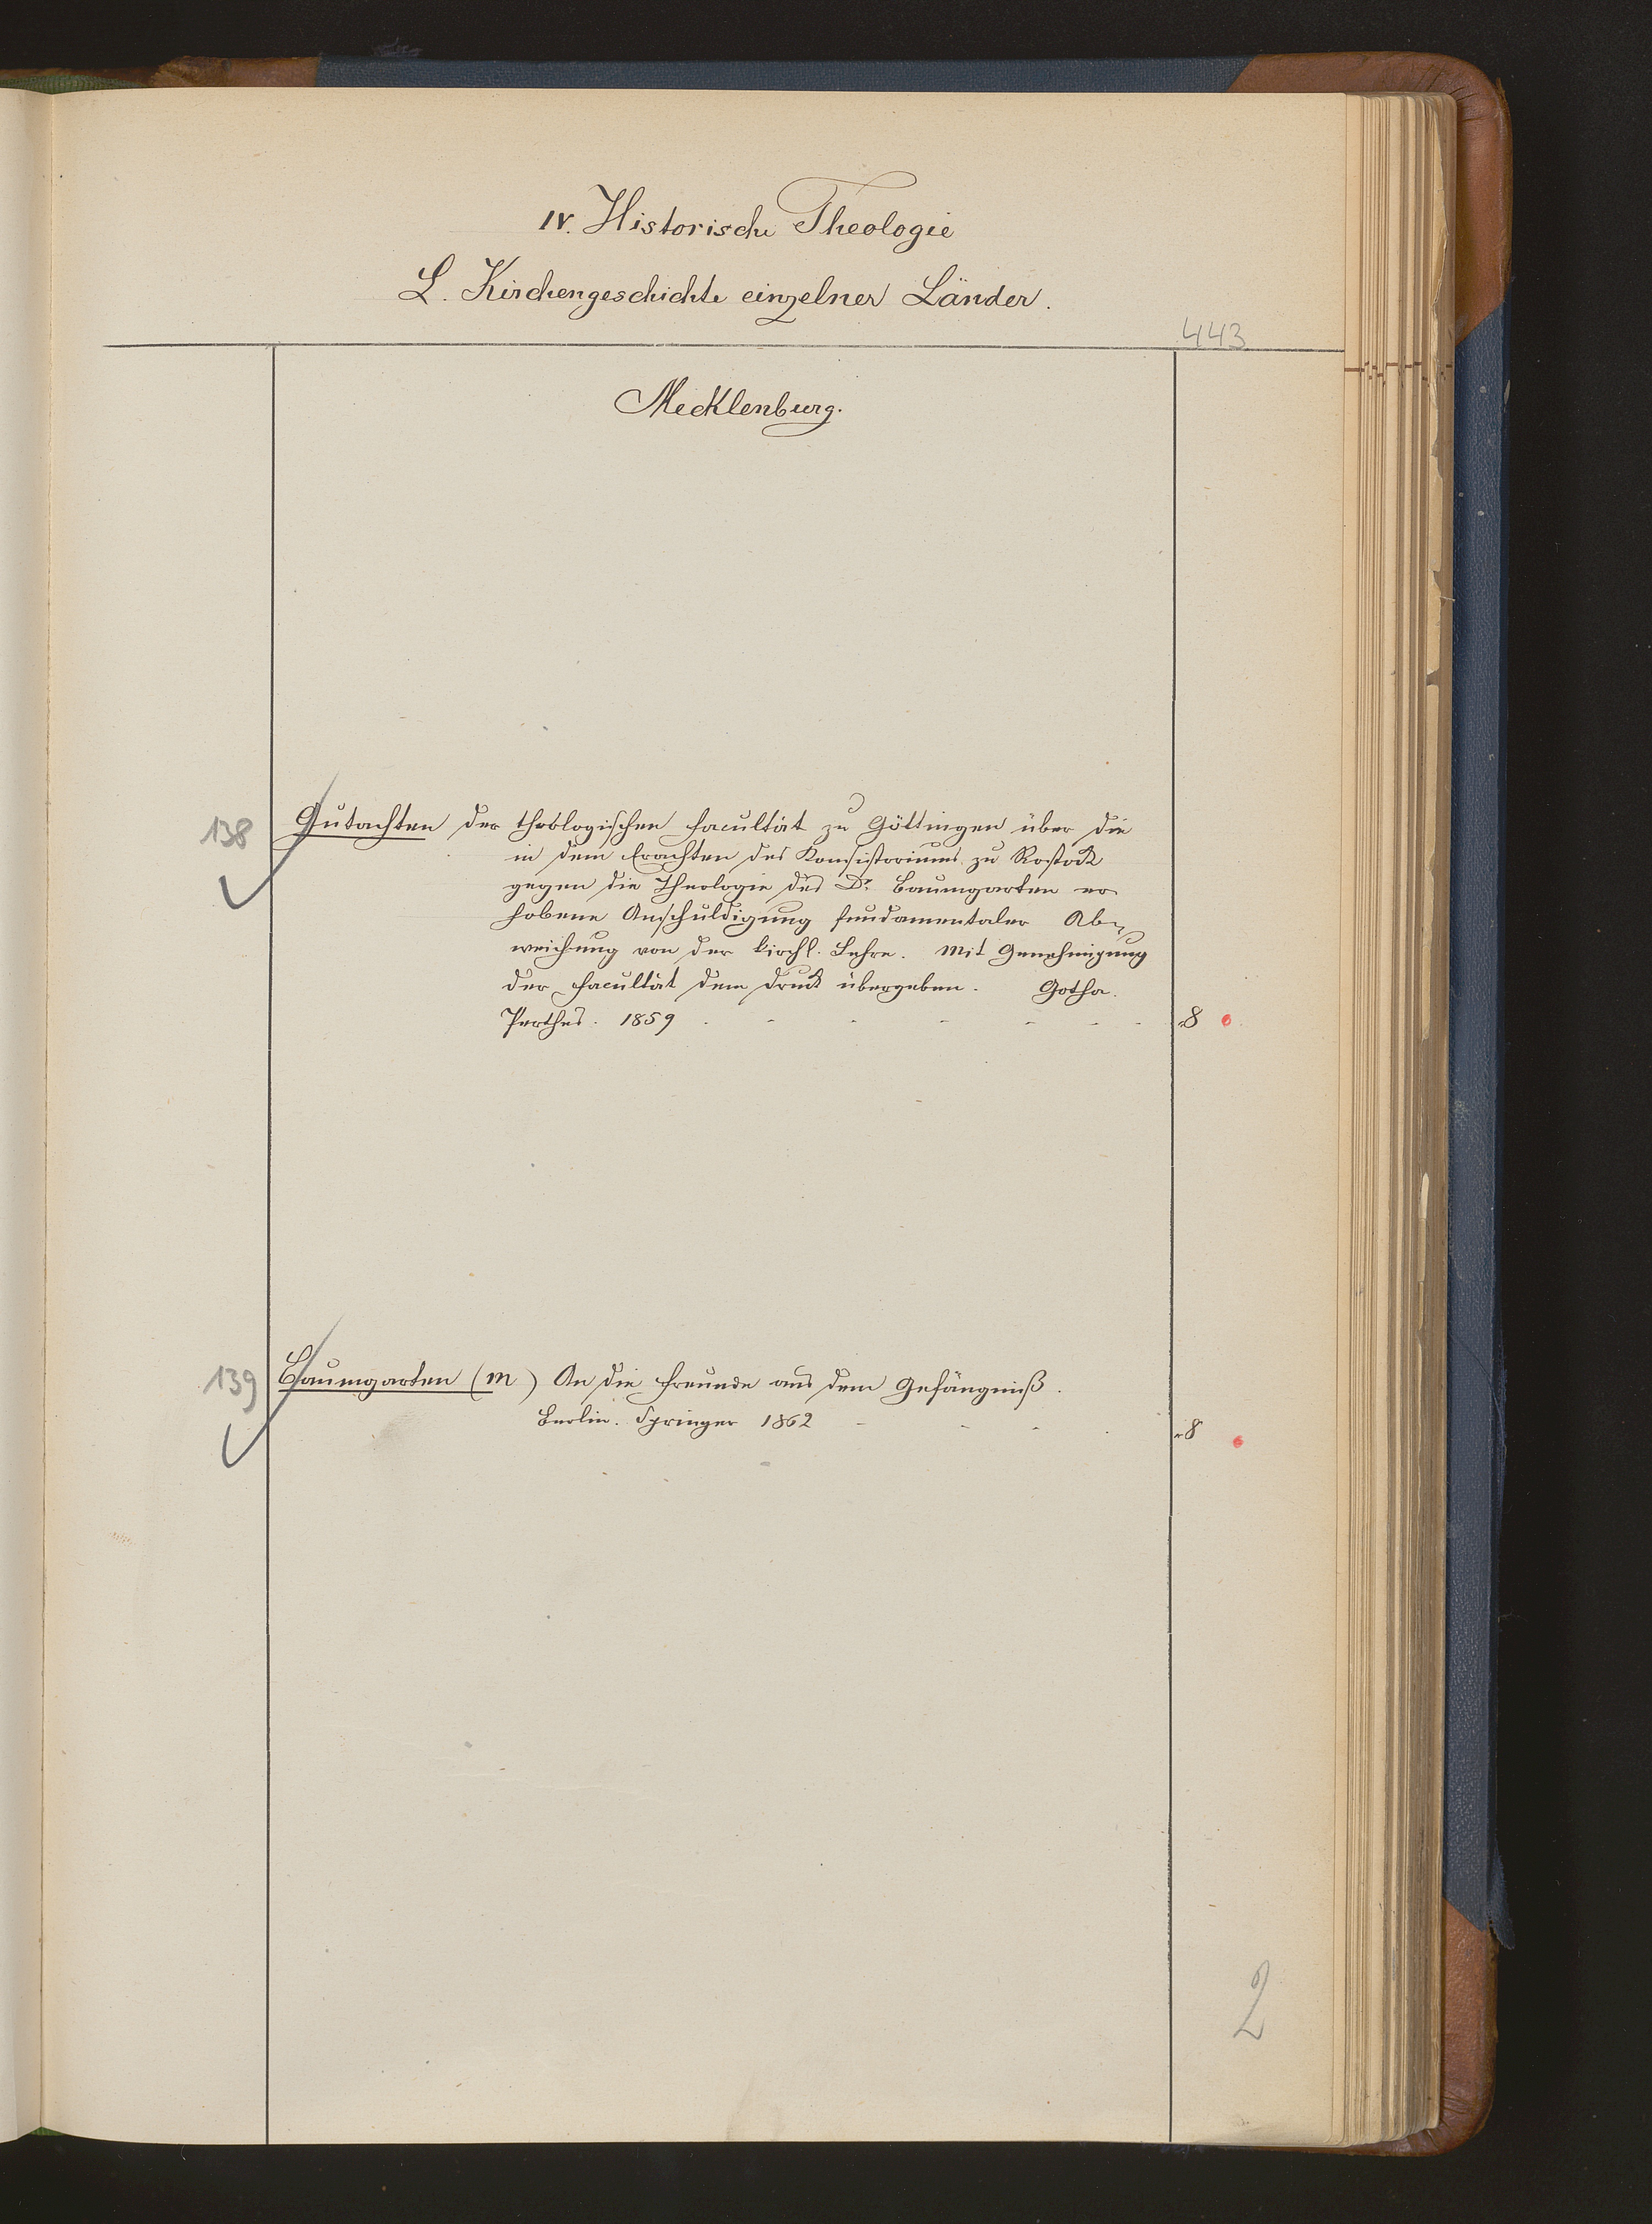 IV. Historische Theologie
L. Kirchengeschichte einzelner Länder.
443
Mecklenburg.
138 Gutachten der theologischen Facultät zu Göttingen über die
in dem Erachten des Konsistoriums zu Rostock
gegen die Theologie des Dr. Baumgarten er-
hobene Anschuldigung fundamentaler Ab-
weichung von der kirchl. Lehre. Mit Genehmigung
der Facultät dem Druck übergeben. Gotha.
Perthes. 1859 . - - - - - - 8
139 Baumgarten (M) An die Freunde aus dem Gefängniß.
Berlin. Springer 1862 - - - . 8
2